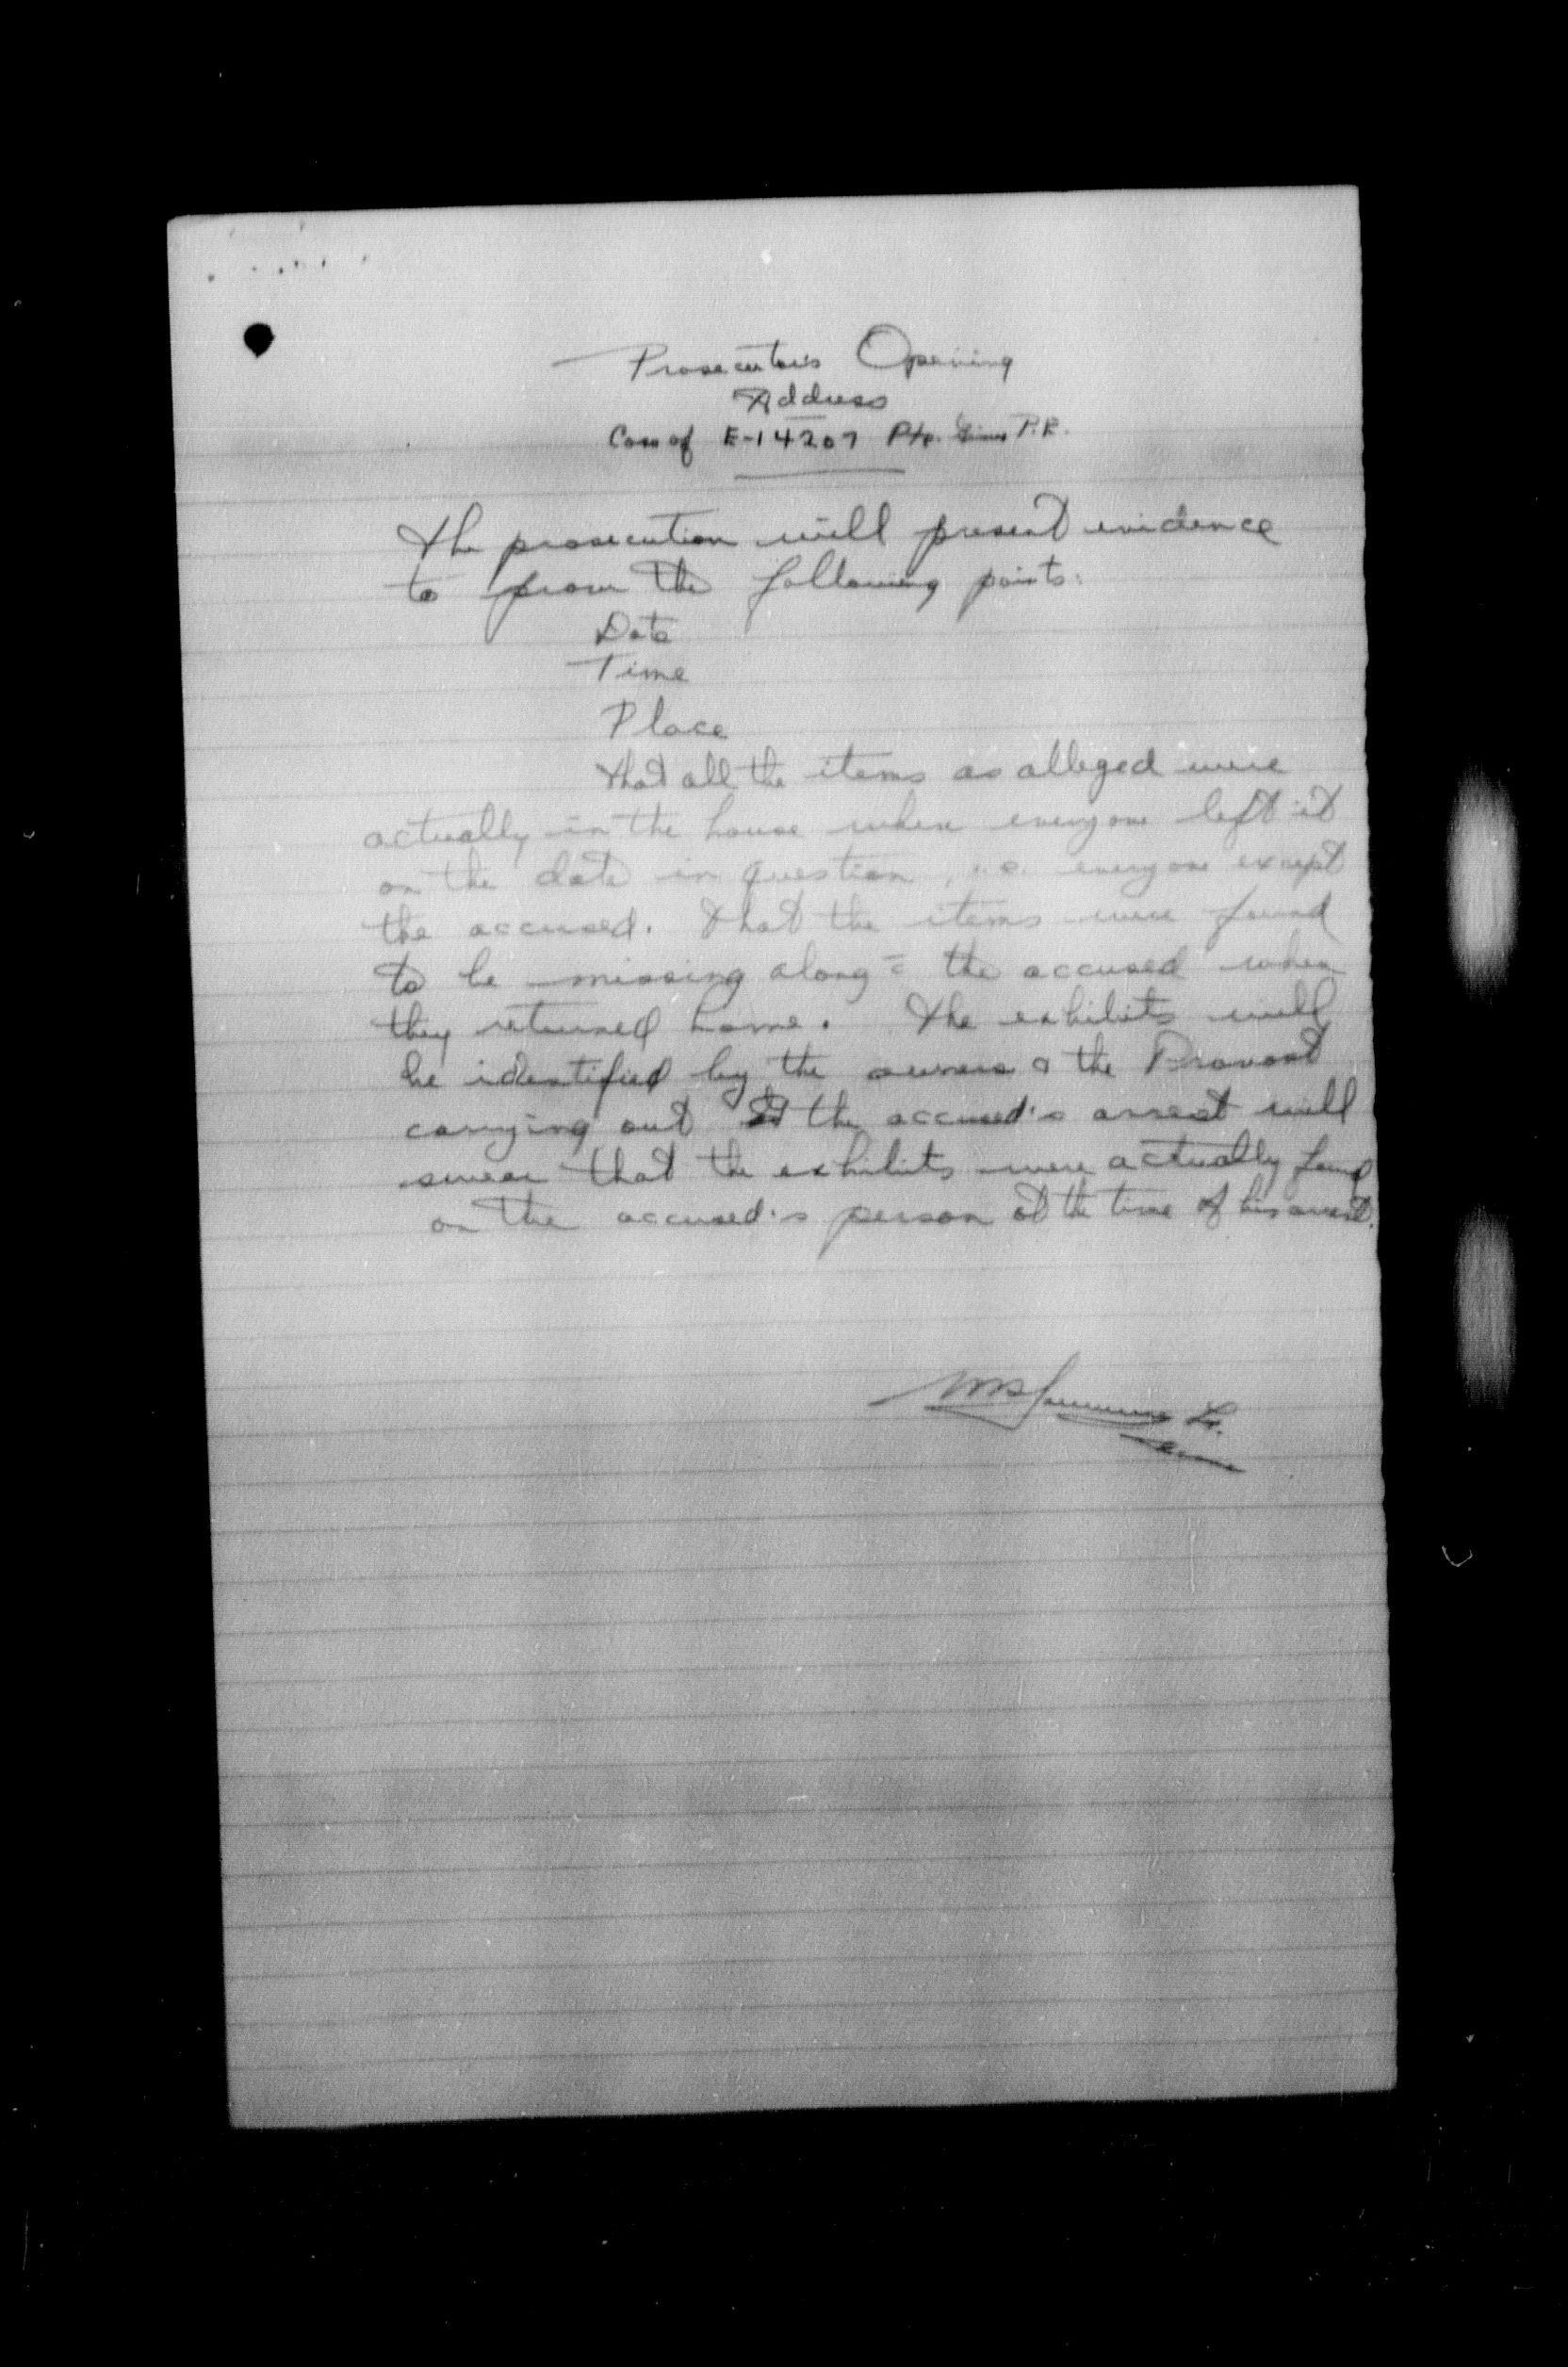 Prosecutor's Opening
Address
Case of E-14207 Pte. P.E.
The prosecution will present evidence
to prove the following points:
Date
Time
Place
That all the items as alleged were
actually in the house when everyone left it
on the date in question, i.e. everyone except
the accused. That the items were found
to be missing along c̄ the accused when
they returned home. The exhibits will
be identified by the owners & the Provost
carrying out the accused's arrest will
swear that the exhibits were actually found
on the accused's person at the time of his arrest.
Lt.